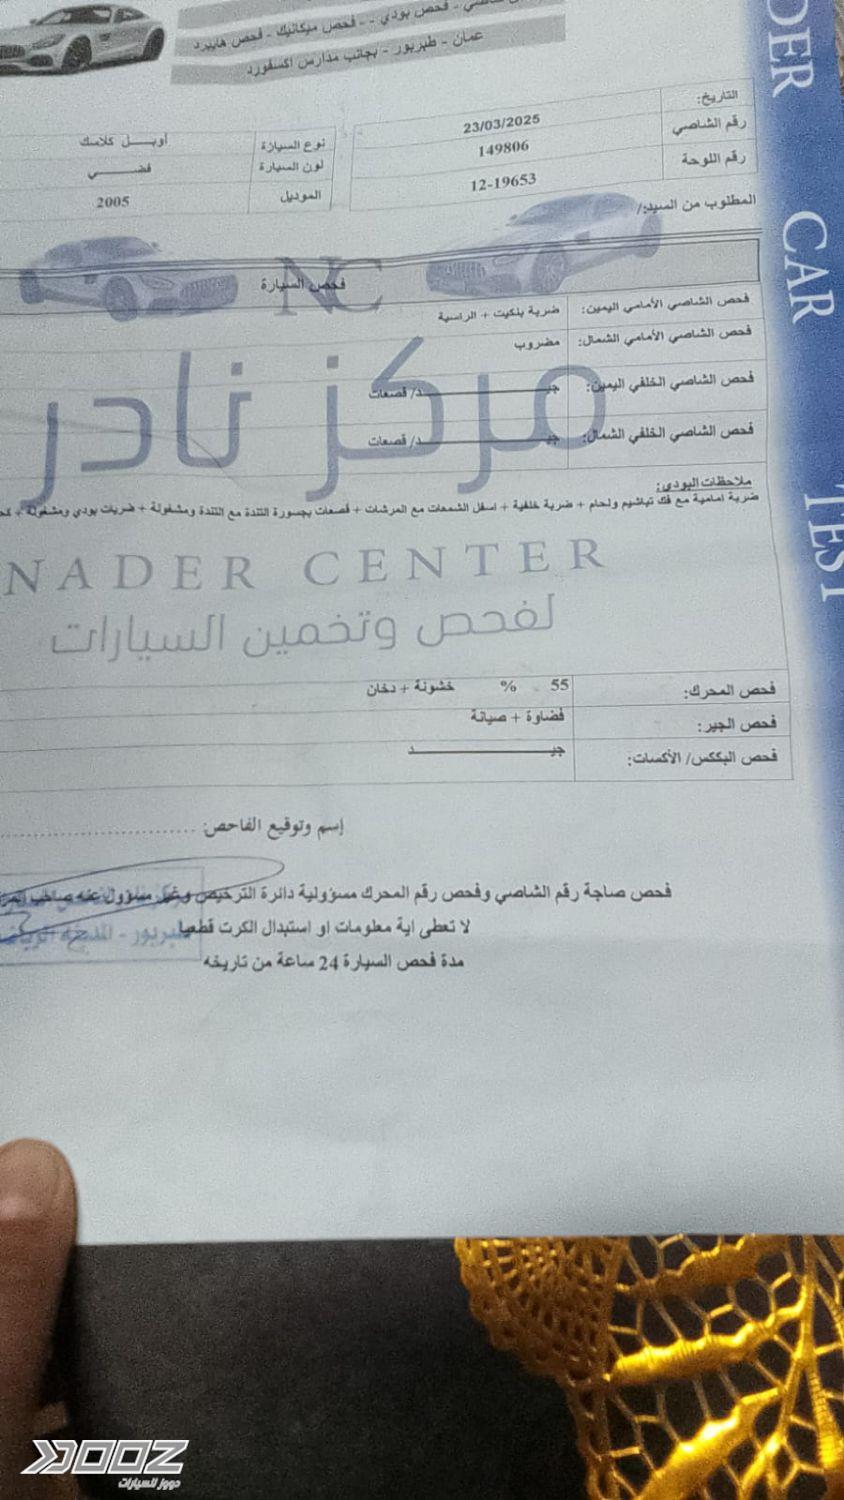 شاصي - فحص بودي - - فحص ميكانيك - فحص هايبرد
عمان - طبربور - بجانب مدارس اكسفورد
التاريخ: 23/03/2025
رقم الشاصي 149806
رقم اللوحة 12-19653
نوع السيارة أوبـــل كلاسك
لون السيارة فضـــي
الموديل 2005
المطلوب من السيد/:
NC
فحص السيارة
فحص الشاصي الأمامي اليمين: ضربة بلكيت + الراسية
فحص الشاصي الأمامي الشمال: مضروب
فحص الشاصي الخلفي اليمين: جيـــد/ قصعات
فحص الشاصي الخلفي الشمال: جيـــد/ قصعات
مركز نادر
ملاحظات البودي:
ضربة امامية مع فك تباشيم ولحام + ضربة خلفية + اسفل الشمعات مع المرشات + قصعات بجسورة التندة مع التندة ومشغولة + ضربات بودي ومشغولة +
NADER CENTER
لفحص وتخمين السيارات
فحص المحرك: 55 % خشونة + دخان
فحص الجير: فضاوة + صيانة
فحص البككس/ الأكسات: جيـــد
إسم وتوقيع الفاحص: ..............................
فحص صاجة رقم الشاصي وفحص رقم المحرك مسؤولية دائرة الترخيص وغير مسؤول عنه صاحب
لا تعطى اية معلومات او استبدال الكرت قطعيا
طبربور -
مدة فحص السيارة 24 ساعة من تاريخه
DER CAR TEST
DOOZ
دووز للسيارات